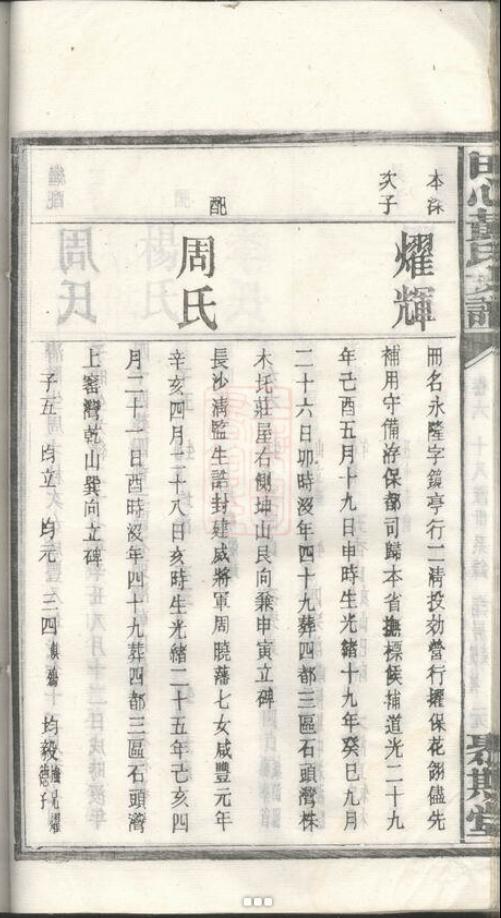 本深
次子
耀輝
冊名永隆字鏡亭行二清投効營行擢保花翎儘先
補用守備洊保都司歸本省撫標候補道光二十九
年己酉五月十九日申時生光緒十九年癸巳九月
二十六日卯時沒年四十九葬四都三區石頭灣株
木托莊屋右側坤山艮向兼申寅立碑
配
周氏
長沙清監生誥封建威將軍周曉藩七女咸豐元年
辛亥四月二十八日亥時生光緒二十五年己亥四
月二十一日酉時沒年四十九葬四都三區石頭灣
上窰灣乾山巽向立碑
子五 均立 均元 三四 均毅
黃氏支譜
卷六